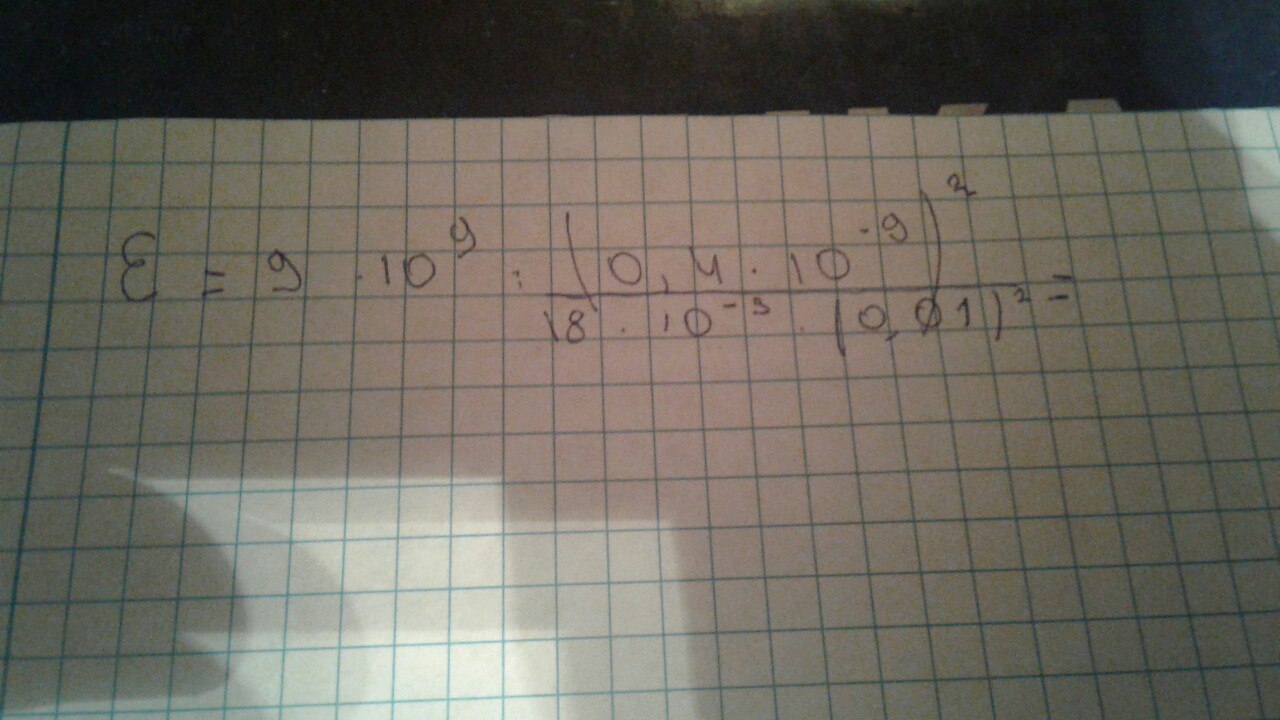 ε = 9 · 10⁹ · (0,4 · 10⁻⁹)²
18 · 10⁻⁹ · (0,01)² =